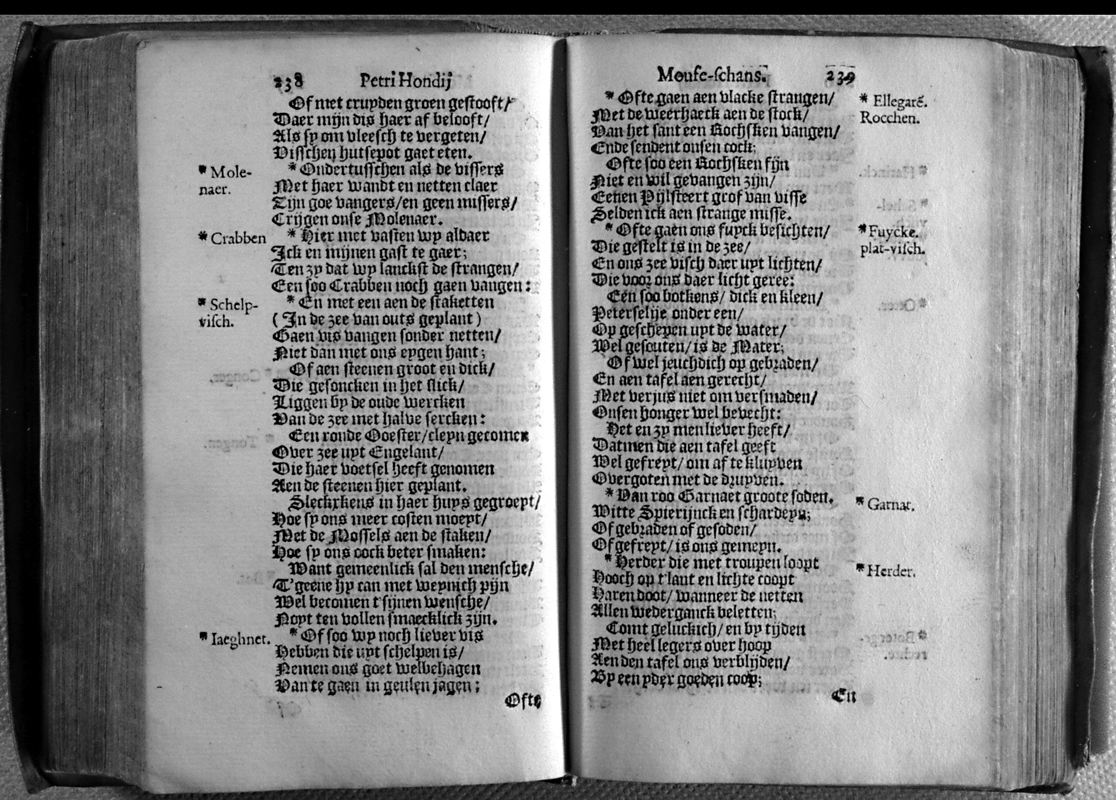 238 Petri Hondij
Of met cruyden groen gestooft/
Daer mijn dis haer af belooft/
Als sy om vleesch te vergeten/
Visschen hutsepot gaet eten.
* Mole-
naer.
* Ondertusschen als de vissers
Met haer wandt en netten claer
Zijn goe vangers/en geen missers/
Crijgen onse Molenaer.
* Crabben
* Hier met vasten wy aldaer
Ick en mijnen gast te gaer;
Ten zy dat wy lanckst de strangen/
Een soo Crabben noch gaen vangen:
* Schelp-
visch.
* En met een aen de staketten
(In de zee van outs geplant)
Gaen vis vangen sonder netten/
Niet dan met ons eygen hant;
Of aen steenen groot en dick/
Die gesoncken in het slick/
Liggen by de oude wercken
Van de zee met halve sercken:
Een ronde Ooester/cleyn gecomen
Over zee uyt Engelant/
Die haer voetsel heeft genomen
Aen de steenen hier geplant.
Sleckxkens in haer huys gegroeyt/
Hoe sy ons meer costen moeyt/
Met de Mossels aen de staken/
Hoe sy ons oock beter smaken:
Want gemeenlick sal den mensche/
T'geene hy can met weynich pijn
Wel becomen t'sijnen wensche/
Noyt ten vollen smaecklick zijn.
* Iaeghnet.
* Of soo wy noch liever vis
Hebben die uyt schelpen is/
Nemen ons goet welbehagen
Van te gaen in geulen jagen;
Ofte
Moufe-schans. 239
* Ofte gaen aen vlacke strangen/
Met de weerhaeck aen de stock/
Van het sant een Rochsken vangen/
Ende sendent onsen cock;
* Ellegarē.
Rocchen.
Ofte soo een Rochsken fijn
Niet en wil gevangen zijn/
Eenen Pijlsteert grof van visse
Selden ick aen strange misse.
* Ofte gaen ons fuyck besichten/
Die gestelt is in de zee/
En ons zee visch daer uyt lichten/
Die voor ons daer licht geree:
* Fuycke.
plat-visch.
Een soo botkens/ dick en kleen/
Peterselije onder een/
Op geschepen uyt de water/
Wel gesouten/is de Mater;
Of wel jeuchdich op gebraden/
En aen tafel aen gerecht/
Met verjus niet om versmaden/
Onsen honger wel bevecht:
Het en zy men liever heeft/
Datmen die aen tafel geeft
Wel gefreyt/ om af te kluyven
Overgoten met de druyven.
* Van roo Garnaet groote soden,
Witte Spierijnck en schardeyn;
Of gebraden of gesoden/
Of gefreyt/ is ons gemeyn.
* Garnat.
* Herder die met troupen loopt
Hooch op t'lant en lichte coopt
Haren doot/ wanneer de netten
Allen wederganck beletten;
* Herder.
Comt geluckich/ en by tijden
Met heel legers over hoop
Aen den tafel ons verblijden/
By een yder goeden coop;
En